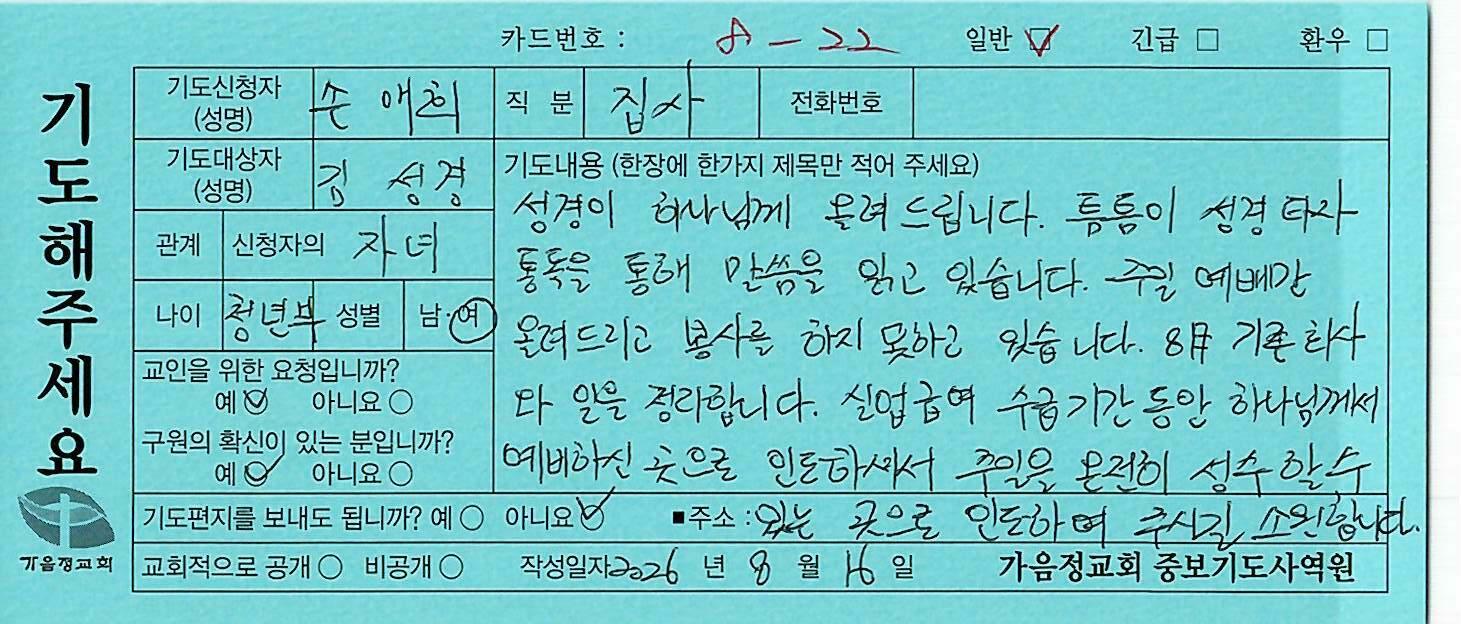 카드번호 : A - 22 일반 ☑ 긴급 □ 환우 □
기도해주세요
기도신청자 (성명) 손애희 직분 집사 전화번호
기도대상자 (성명) 김성경 기도내용 (한장에 한가지 제목만 적어 주세요)
관계 신청자의 자녀
나이 청년부 성별 남·여
교인을 위한 요청입니까?
예 ☑ 아니요 ○
구원의 확신이 있는 분입니까?
예 ☑ 아니요 ○
성경이 하나님께 올려드립니다. 틈틈이 성경타자
통독을 통해 말씀을 읽고 있습니다. 주일 예배만
올려드리고 봉사를 하지 못하고 있습니다. 8月 기존회사
와 일을 정리합니다. 실업급여 수급기간 동안 하나님께서
예비하신 곳으로 인도하셔서 주일을 온전히 성수할수
있는 곳으로 인도하여 주시길 소원합니다.
기도편지를 보내도 됩니까? 예 ○ 아니요 ☑ ■주소 :
교회적으로 공개 ○ 비공개 ○ 작성일자 2026 년 8 월 16 일 가음정교회 중보기도사역원
가음정교회